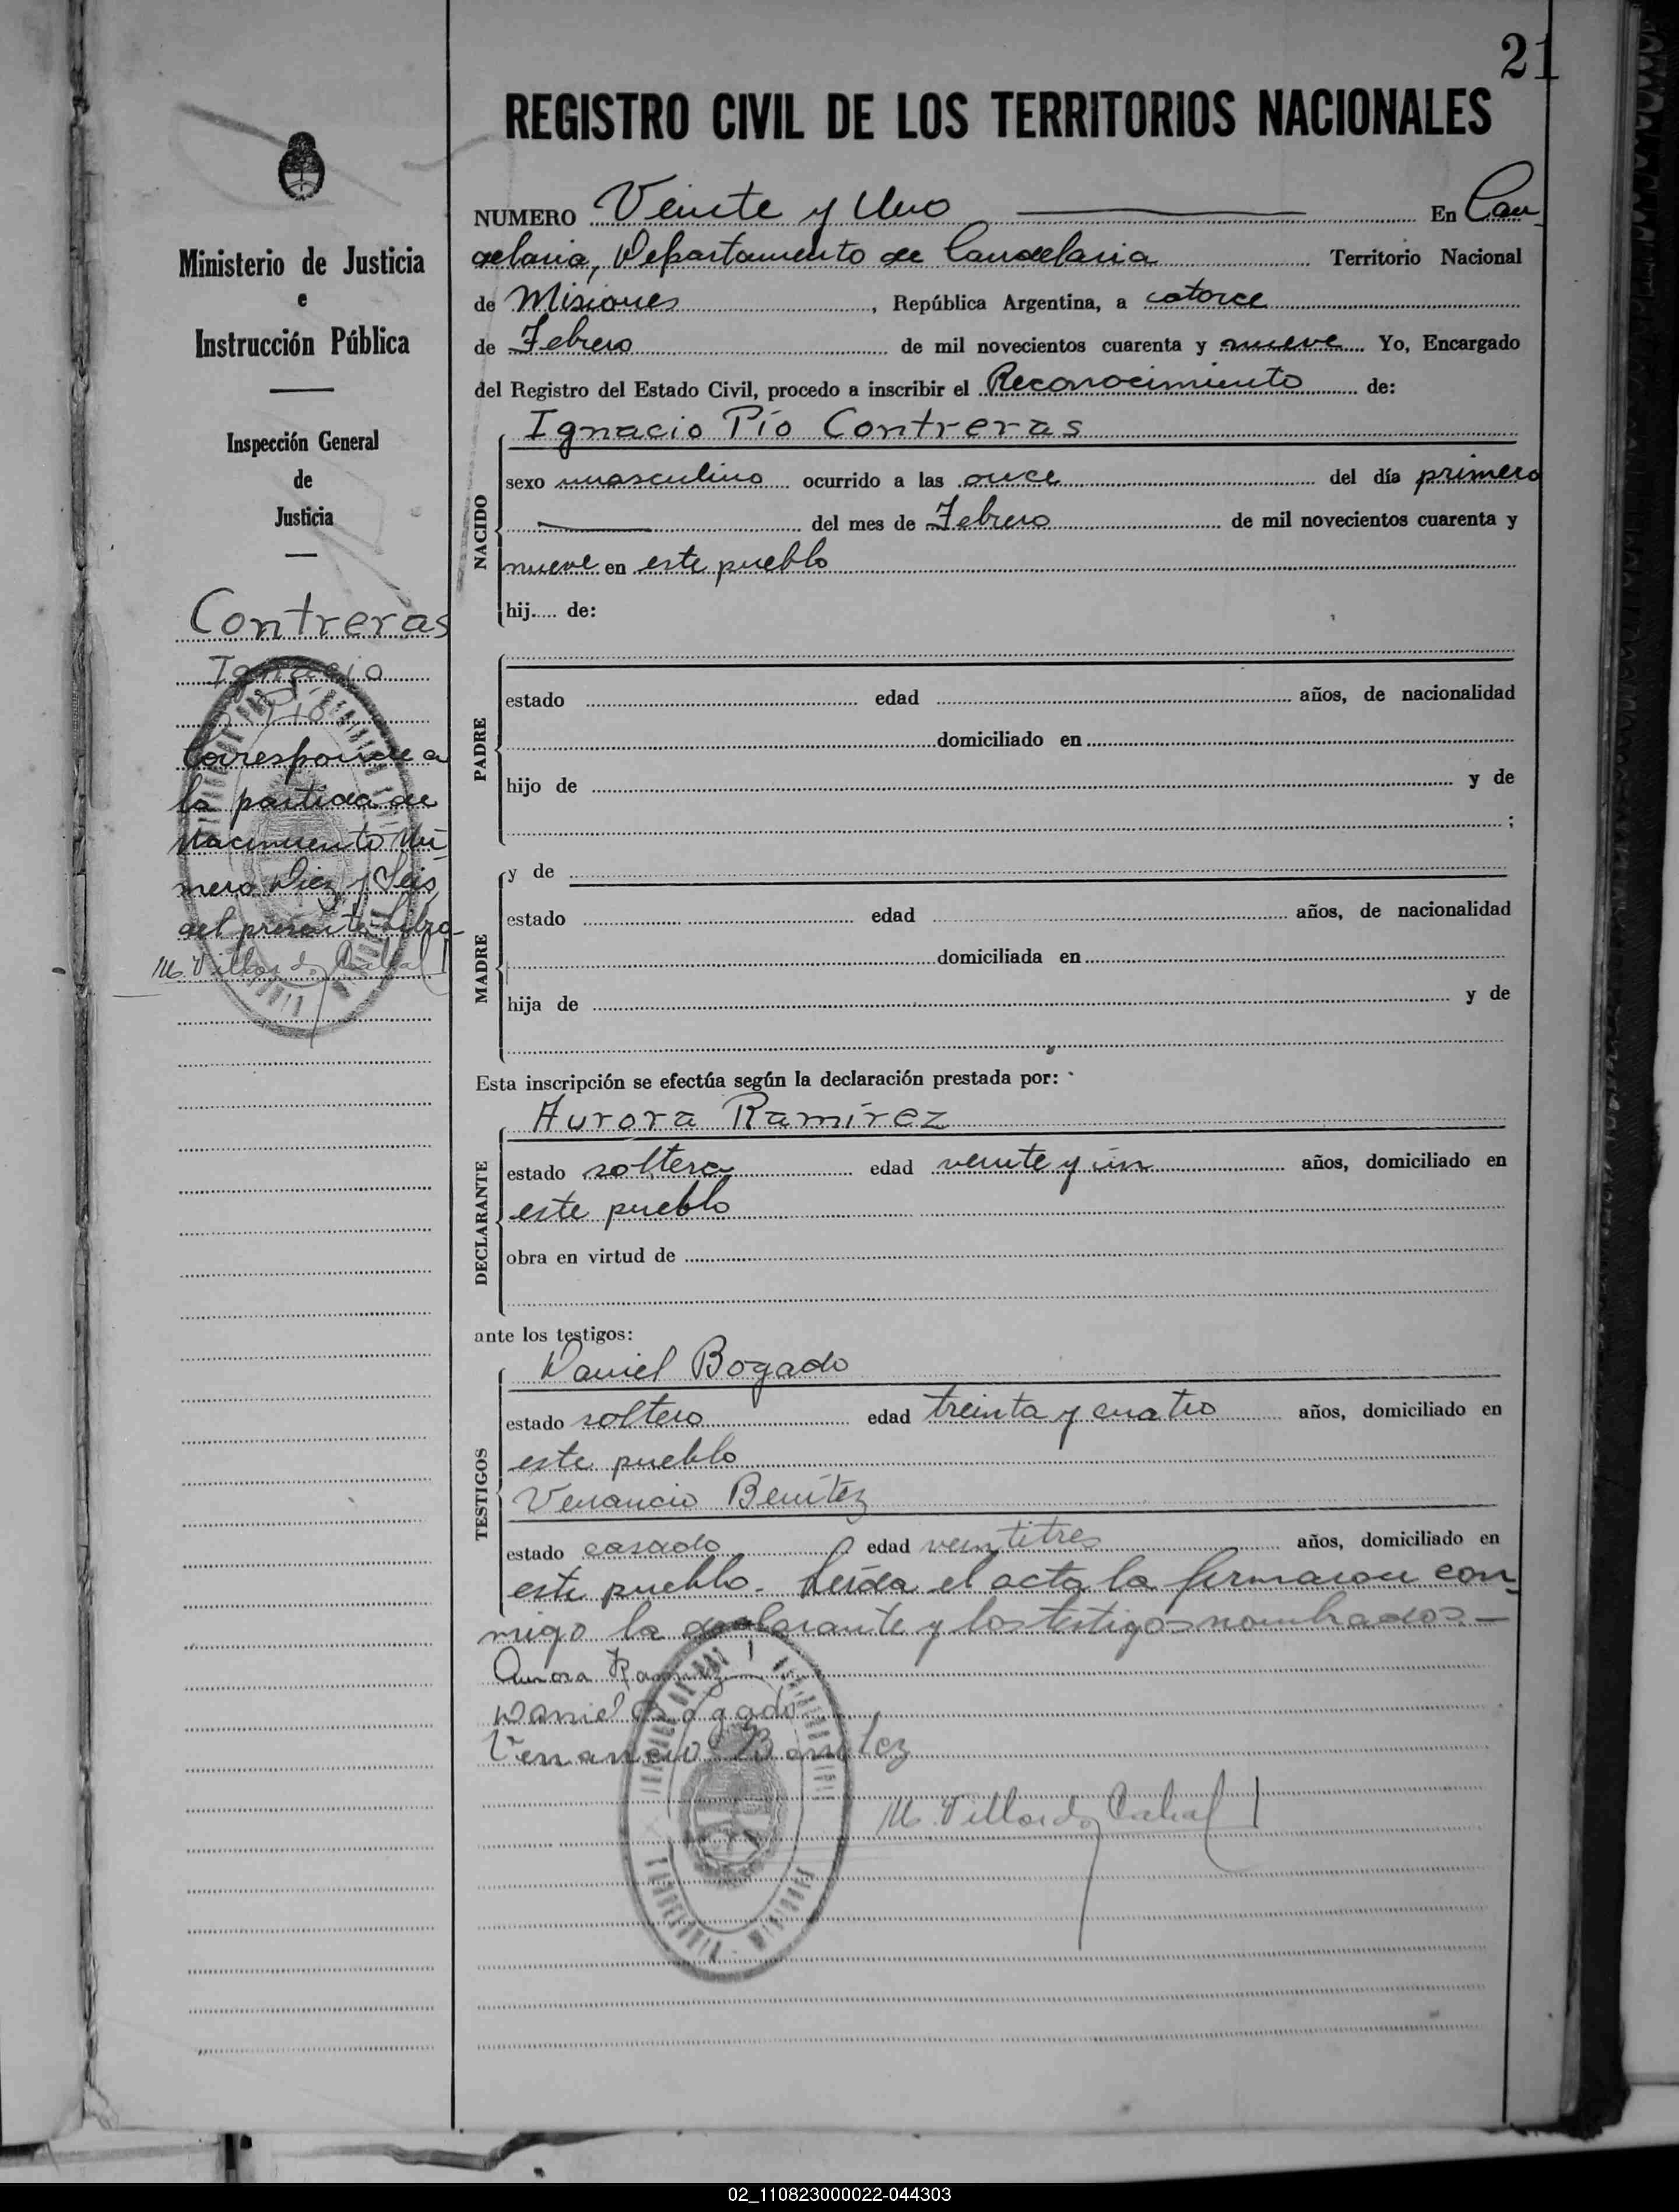 21
REGISTRO CIVIL DE LOS TERRITORIOS NACIONALES
Ministerio de Justicia
e
Instrucción Pública
Inspección General
de
Justicia
Contreras
Ignacio
Pío
Corresponde a
la partida de
Nacimiento Nú
mero Diez y Seis
del presente Libro
M. Villordo Cabral
NUMERO Veinte y Uno En Can
delaria, Departamento de Candelaria Territorio Nacional
de Misiones, República Argentina, a catorce
de Febrero de mil novecientos cuarenta y nueve Yo, Encargado
del Registro del Estado Civil, procedo a inscribir el Reconocimiento de:
NACIDO
Ignacio Pío Contreras
sexo masculino ocurrido a las once del día primero
del mes de Febrero de mil novecientos cuarenta y
nueve en este pueblo
hij.... de:
PADRE
estado edad años, de nacionalidad
domiciliado en
hijo de y de
;
MADRE
y de
estado edad años, de nacionalidad
domiciliada en
hija de y de
Esta inscripción se efectúa según la declaración prestada por:
DECLARANTE
Aurora Ramírez
estado soltera edad veinte y un años, domiciliado en
este pueblo
obra en virtud de
ante los testigos:
TESTIGOS
Daniel Bogado
estado soltero edad treinta y cuatro años, domiciliado en
este pueblo
Venancio Benítez
estado casado edad veintitres años, domiciliado en
este pueblo. Leída el acta la firmaron con
migo la declarante y los testigos nombrados.-
Aurora Ramirez
Daniel Bogado
Venancio Benitez
M. Villordo Cabral
02_110823000022-044303